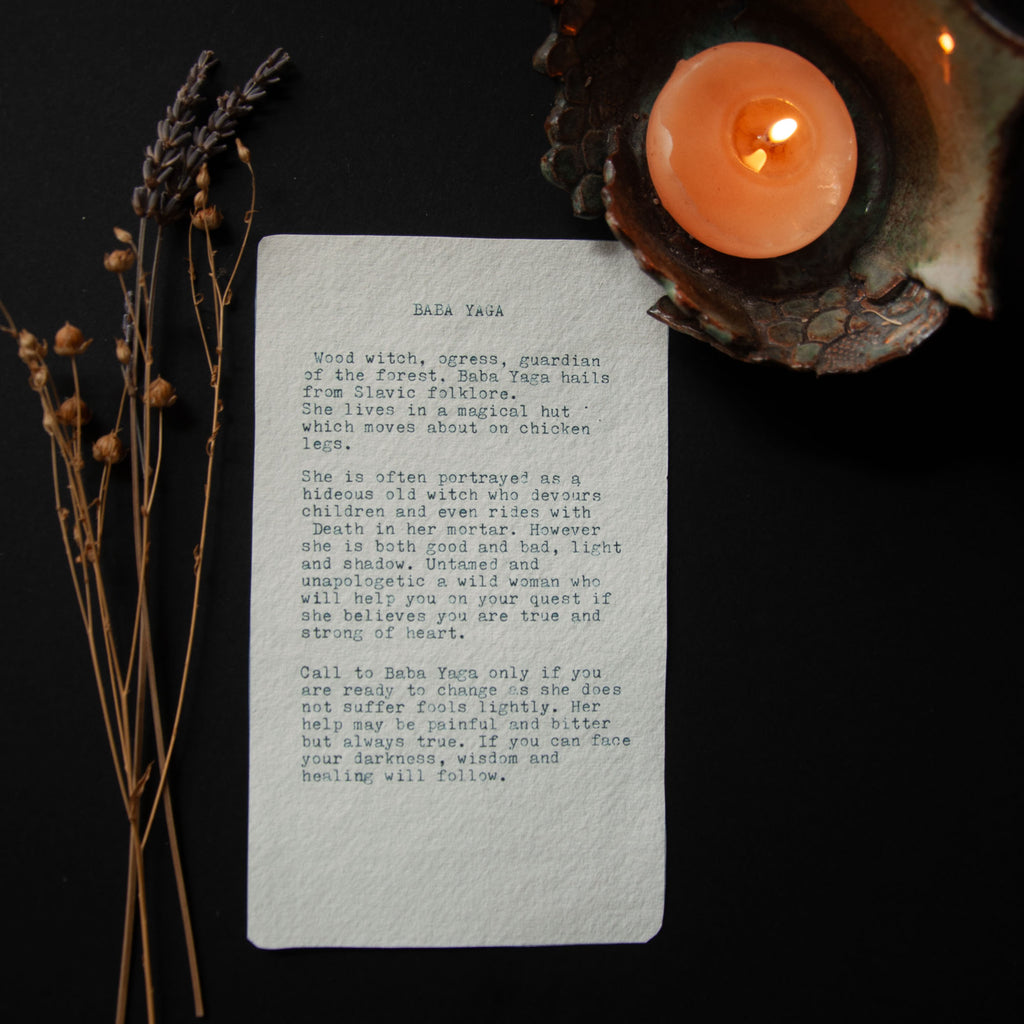 BABA YAGA
Wood witch, ogress, guardian
of the forest. Baba Yaga hails
from Slavic folklore.
She lives in a magical hut
which moves about on chicken
legs.
She is often portrayed as a
hideous old witch who devours
children and even rides with
Death in her mortar. However
she is both good and bad, light
and shadow. Untamed and
unapologetic a wild woman who
will help you on your quest if
she believes you are true and
strong of heart.
Call to Baba Yaga only if you
are ready to change as she does
not suffer fools lightly. Her
help may be painful and bitter
but always true. If you can face
your darkness, wisdom and
healing will follow.